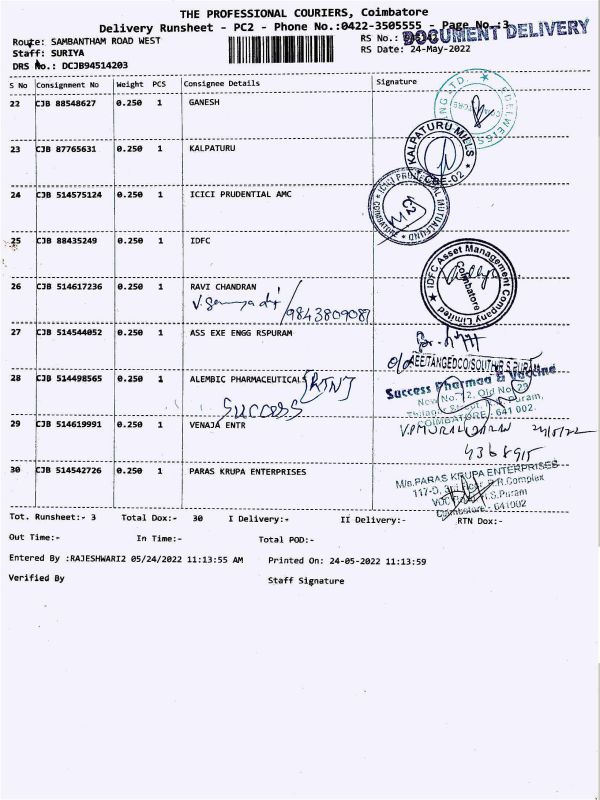 THE PROFESSIONAL COURIERS, Coimbatore
Delivery Runsheet - PC2 - Phone No.:0422-3505555 - Page No.:3
Route: SAMBANTHAM ROAD WEST
RS No.: DOCUMENT DELIVERY
Staff: SURIYA
RS Date: 24-May-2022
DRS No.: DCJB94514203
S No Consignment No Weight PCS Consignee Details Signature
22 CJB 88548627 0.250 1 GANESH
EDELWEISS
23 CJB 87765631 0.250 1 KALPATURU
KALPATURU MILLS CBE-02
24 CJB 514575124 0.250 1 ICICI PRUDENTIAL AMC
ICICI PRUDENTIAL MUTUAL FUND COIMBATORE
25 CJB 88435249 0.250 1 IDFC
IDFC Asset Management Company Limited Coimbatore
26 CJB 514617236 0.250 1 RAVI CHANDRAN
9843809087
27 CJB 514544052 0.250 1 ASS EXE ENGG RSPURAM
O/o AEE/TANGEDCO/SOUTH/R.S.PURAM
28 CJB 514498565 0.250 1 ALEMBIC PHARMACEUTICALS [RTN]
SUCCESS
Success Pharmaa & Vaccine
New No. 72, Old No. 29
COIMBATORE - 641 002.
29 CJB 514619991 0.250 1 VENAJA ENTR
V.P.MURALIDARAN 24/5/22
4368915
30 CJB 514542726 0.250 1 PARAS KRUPA ENTERPRISES
M/s.PARAS KRUPA ENTERPRISES
117-D, R.R.Complex
R.S.Puram
Coimbatore - 641002
Tot. Runsheet:- 3 Total Dox:- 30 I Delivery:- II Delivery:- RTN Dox:-
Out Time:- In Time:- Total POD:-
Entered By :RAJESHWARI2 05/24/2022 11:13:55 AM Printed On: 24-05-2022 11:13:59
Verified By Staff Signature